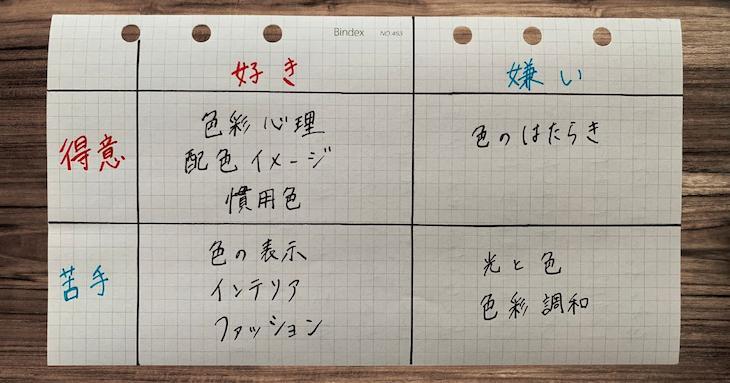 Bindex NO.453
好き 嫌い
得意
色彩心理
配色イメージ
慣用色
色のはたらき
苦手
色の表示
インテリア
ファッション
光と色
色彩調和